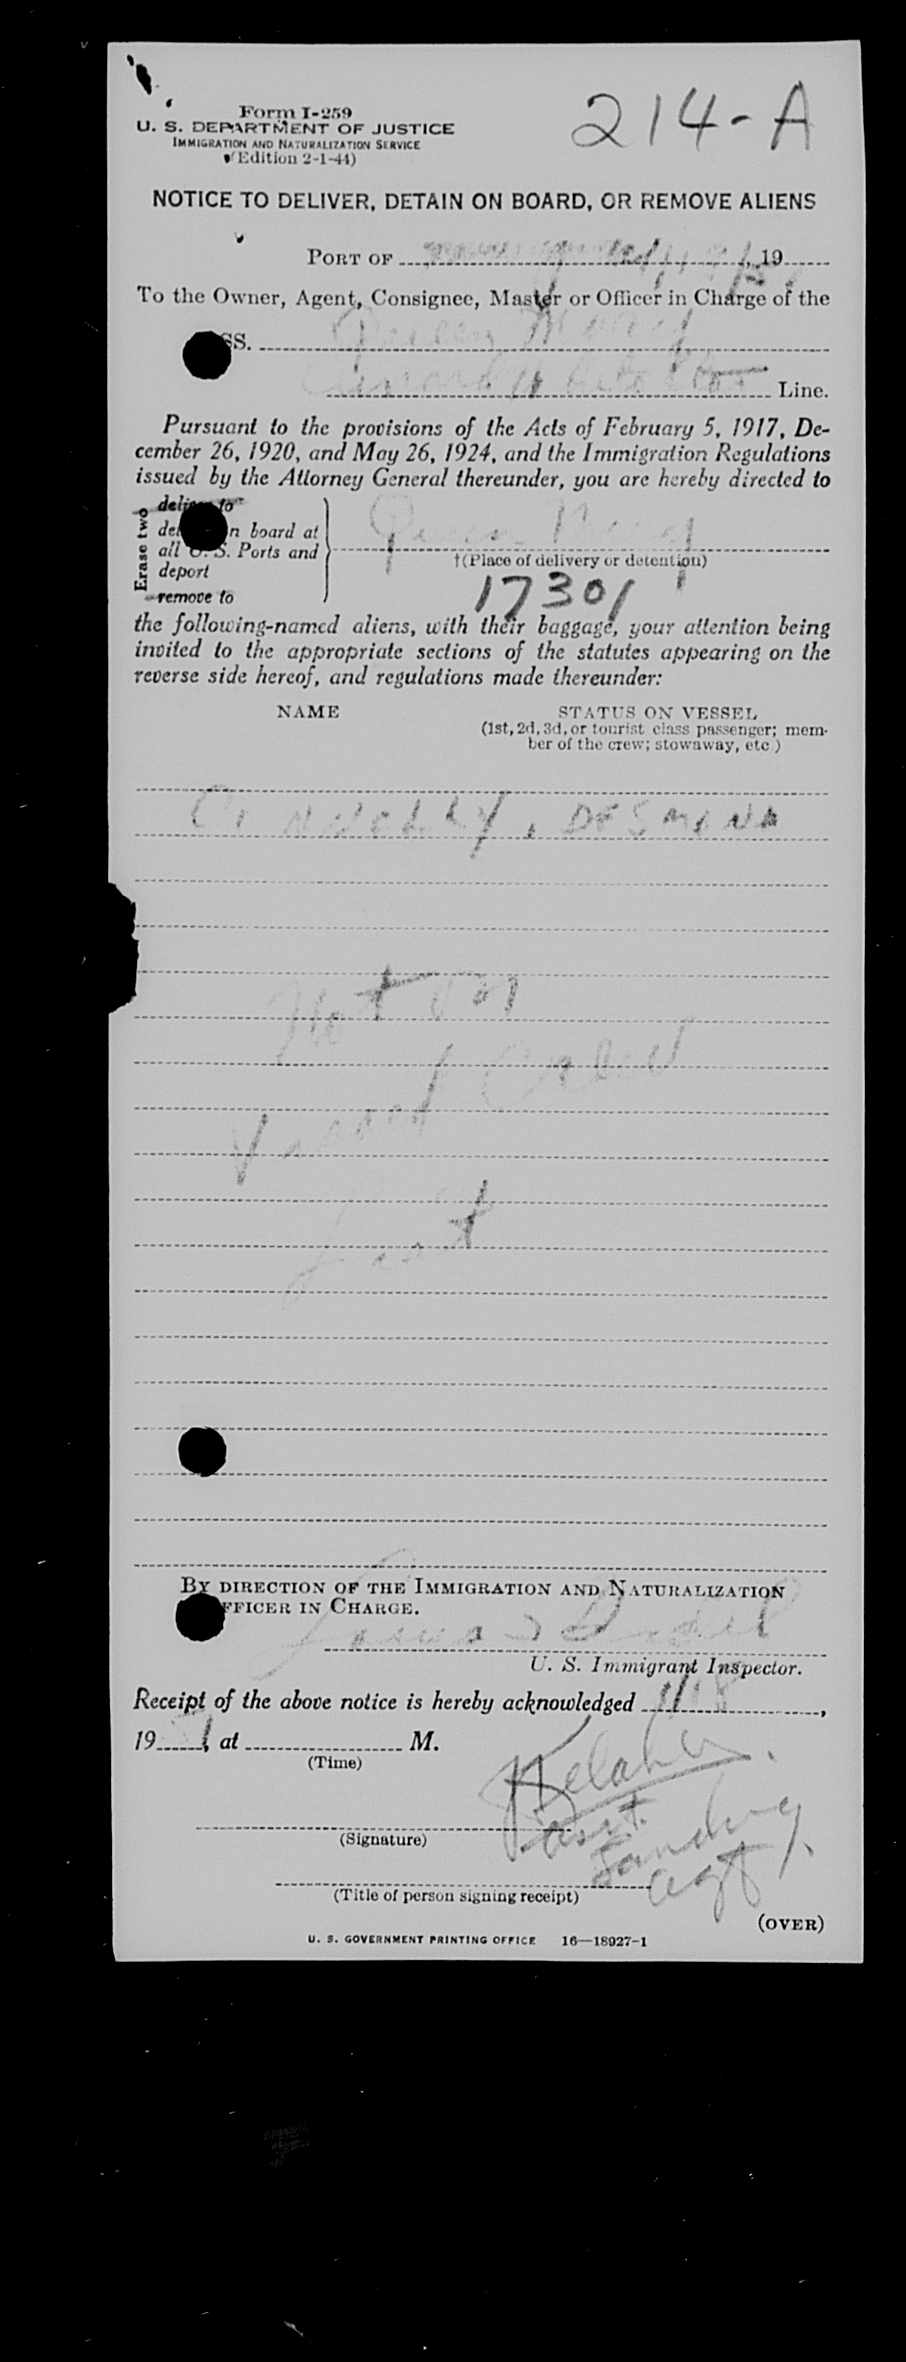 214-A
Form I-259
U. S. DEPARTMENT OF JUSTICE
IMMIGRATION AND NATURALIZATION SERVICE
(Edition 2-1-44)
NOTICE TO DELIVER, DETAIN ON BOARD, OR REMOVE ALIENS
PORT OF , 19
To the Owner, Agent, Consignee, Master or Officer in Charge of the
SS. Queen Mary
Cunard White Star Line.
Pursuant to the provisions of the Acts of February 5, 1917, De-
cember 26, 1920, and May 26, 1924, and the Immigration Regulations
issued by the Attorney General thereunder, you are hereby directed to
Erase two
deliver to
n board at
all U. S. Ports and
deport
remove to
Queen Mary
†(Place of delivery or detention)
17301
the following-named aliens, with their baggage, your attention being
invited to the appropriate sections of the statutes appearing on the
reverse side hereof, and regulations made thereunder:
NAME STATUS ON VESSEL
(1st, 2d, 3d, or tourist class passenger; mem-
ber of the crew; stowaway, etc.)
CONNOLLY, DESMOND
Not on
Visaed Crew
List
BY DIRECTION OF THE IMMIGRATION AND NATURALIZATION
FFICER IN CHARGE.
U. S. Immigrant Inspector.
Receipt of the above notice is hereby acknowledged 1/18,
1951, at M.
(Time)
Kelaher
(Signature)
asst.
Landing
Agt.
(Title of person signing receipt)
(OVER)
U. S. GOVERNMENT PRINTING OFFICE 16—18927-1